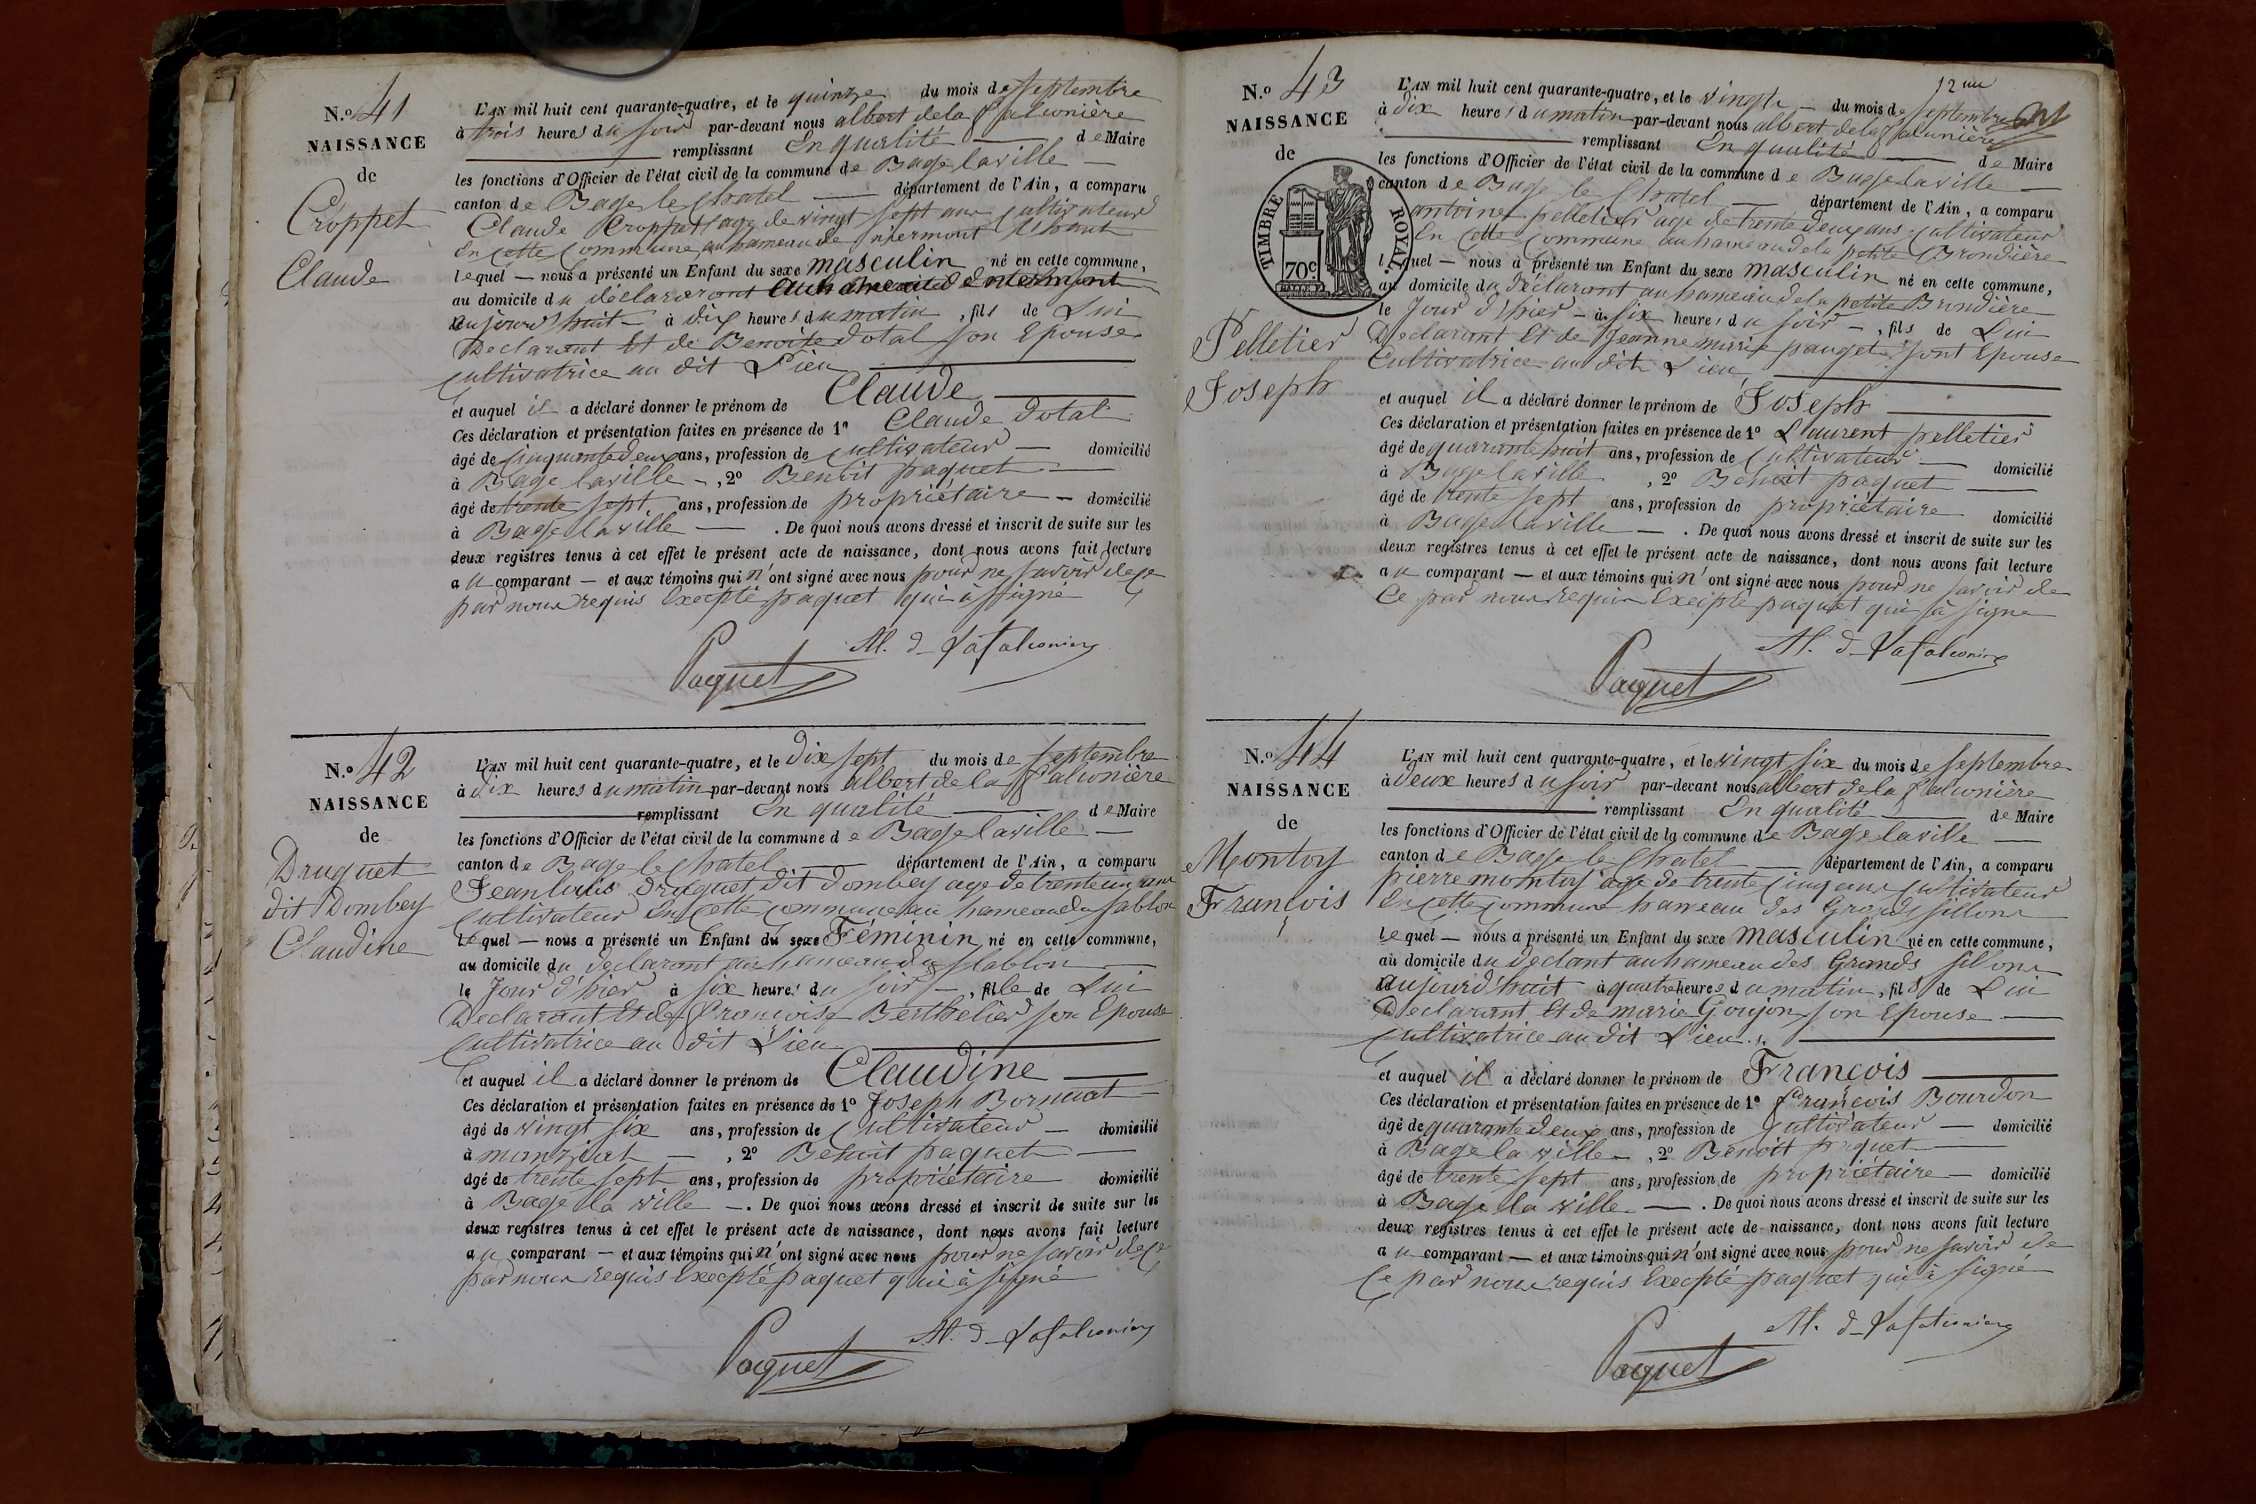 N.o 41
NAISSANCE
de
Croppet
Claude
L'AN mil huit cent quarante-quatre, et le quinze du mois de septembre
à trois heures du soir par-devant nous albert de la falconière
remplissant En qualité de Maire
les fonctions d'Officier de l'état civil de la commune de Bage laville
canton de Bage le Chatel département de l'Ain, a comparu
Claude Croppet age de vingt sept ans Cultivateur
En cette Commune, au hameau de
lequel — nous a présenté un Enfant du sexe masculin né en cette commune,
au domicile du déclarant au hameau de
aujourd'huit à dix heures du matin, fils de Lui
Declarant Et de Benoite dotal son Epouse
cultivatrice au dit Lieu
et auquel il a déclaré donner le prénom de Claude
Ces déclaration et présentation faites en présence de 1° Claude dotal
âgé de cinquante deux ans, profession de cultivateur — domicilié
à Bage laville —, 2° Benoit paquet
âgé de trente sept ans, profession de propriétaire — domicilié
à Bage laville — . De quoi nous avons dressé et inscrit de suite sur les
deux registres tenus à cet effet le présent acte de naissance, dont nous avons fait lecture
au comparant — et aux témoins qui n'ont signé avec nous pour ne savoir de ce
par nous requis Excepté paquet qui à signé
Al. d Lafalconiere
Paquet
N.o 42
NAISSANCE
de
Druguet
dit Dombey
Claudine
L'AN mil huit cent quarante-quatre, et le dix sept du mois de septembre
à dix heures du matin par-devant nous albert de la falconière
remplissant En qualité de Maire
les fonctions d'Officier de l'état civil de la commune de Bage laville —
canton de Bage le Chatel département de l'Ain, a comparu
Jean louis Druguet dit dombey age de trente un ans
Cultivateur En cette commune au hameau du sablon
Lequel — nous a présenté un Enfant du sexe Féminin né en cette commune,
au domicile du declarant au hameau du sablon
le Jour d'hier à six heures du soir —, fille de Lui
Declarant Et de Francoise Berthelier son Epouse
Cultivatrice au dit Lieu
et auquel il a déclaré donner le prénom de Claudine
Ces déclaration et présentation faites en présence de 1° Joseph Bornuat
âgé de vingt six ans, profession de Cultivateur — domicilié
à manziat —, 2° Benoit paquet
âgé de trente sept ans, profession de propriétaire domicilié
à Bage la ville —. De quoi nous avons dressé et inscrit de suite sur les
deux registres tenus à cet effet le présent acte de naissance, dont nous avons fait lecture
au comparant — et aux témoins qui n'ont signé avec nous pour ne savoir de ce
par nous requis Excepté paquet qui à signé
Al. d Lafalconiere
Paquet
12me
N.o 43
NAISSANCE
de
TIMBRE ROYAL
70c
Pelletier
Joseph
L'AN mil huit cent quarante-quatre, et le vingt — du mois de septembre
à dix heures du matin par-devant nous albert de la falconière
remplissant En qualité de Maire
les fonctions d'Officier de l'état civil de la commune de Bage laville
canton de Bage le Chatel département de l'Ain, a comparu
antoine pelletier age de trente deux ans Cultivateur
En cette Commune au hameau de la petite Brondière
lequel — nous a présenté un Enfant du sexe masculin né en cette commune,
au domicile du Déclarant au hameau de la petite Brondière
le Jour d'hier — à six heures du soir —, fils de Lui
Declarant Et de Jeanne marie pauget sont Epouse
Cultivatrice au dit Lieu
et auquel il a déclaré donner le prénom de Joseph
Ces déclaration et présentation faites en présence de 1° Laurent pelletier
âgé de quarante huit ans, profession de Cultivateur — domicilié
à Bage laville, 2° Benoit paquet
âgé de trente sept ans, profession de propriétaire domicilié
à Bage laville — . De quoi nous avons dressé et inscrit de suite sur les
deux registres tenus à cet effet le présent acte de naissance, dont nous avons fait lecture
au comparant — et aux témoins qui n'ont signé avec nous pour ne savoir de
Ce par nous requis Excepté paquet qui à signe
Al. d Lafalconiere
Paquet
N.o 44
NAISSANCE
de
Montoy
François
L'AN mil huit cent quarante-quatre, et le vingt six du mois de septembre
à deux heures du soir par-devant nous albert de la falconière
remplissant En qualité de Maire
les fonctions d'Officier de l'état civil de la commune de Bage laville
canton de Bage le Chatel département de l'Ain, a comparu
pierre montoy age de trente cinq ans Cultivateur
En cette commune hameau des Grands sillons
Lequel — nous a présenté un Enfant du sexe masculin né en cette commune,
au domicile du declant au hameau des Grands sillons
aujourd'huit à quatre heures du matin, fils de Lui
Declarant Et de marie Goujon son Epouse
cultivatrice au dit Lieu
et auquel il a déclaré donner le prénom de François
Ces déclaration et présentation faites en présence de 1° François Bourdon
âgé de quarante deux ans, profession de Cultivateur — domicilié
à Bage la ville —, 2° Benoit paquet
âgé de trente sept ans, profession de propriétaire — domicilié
à Bage la ville — . De quoi nous avons dressé et inscrit de suite sur les
deux registres tenus à cet effet le présent acte de naissance, dont nous avons fait lecture
au comparant — et aux témoins qui n'ont signé avec nous pour ne savoir de
Ce par nous requis Excepté paquet qui à signé
Al. d Lafalconiere
Paquet